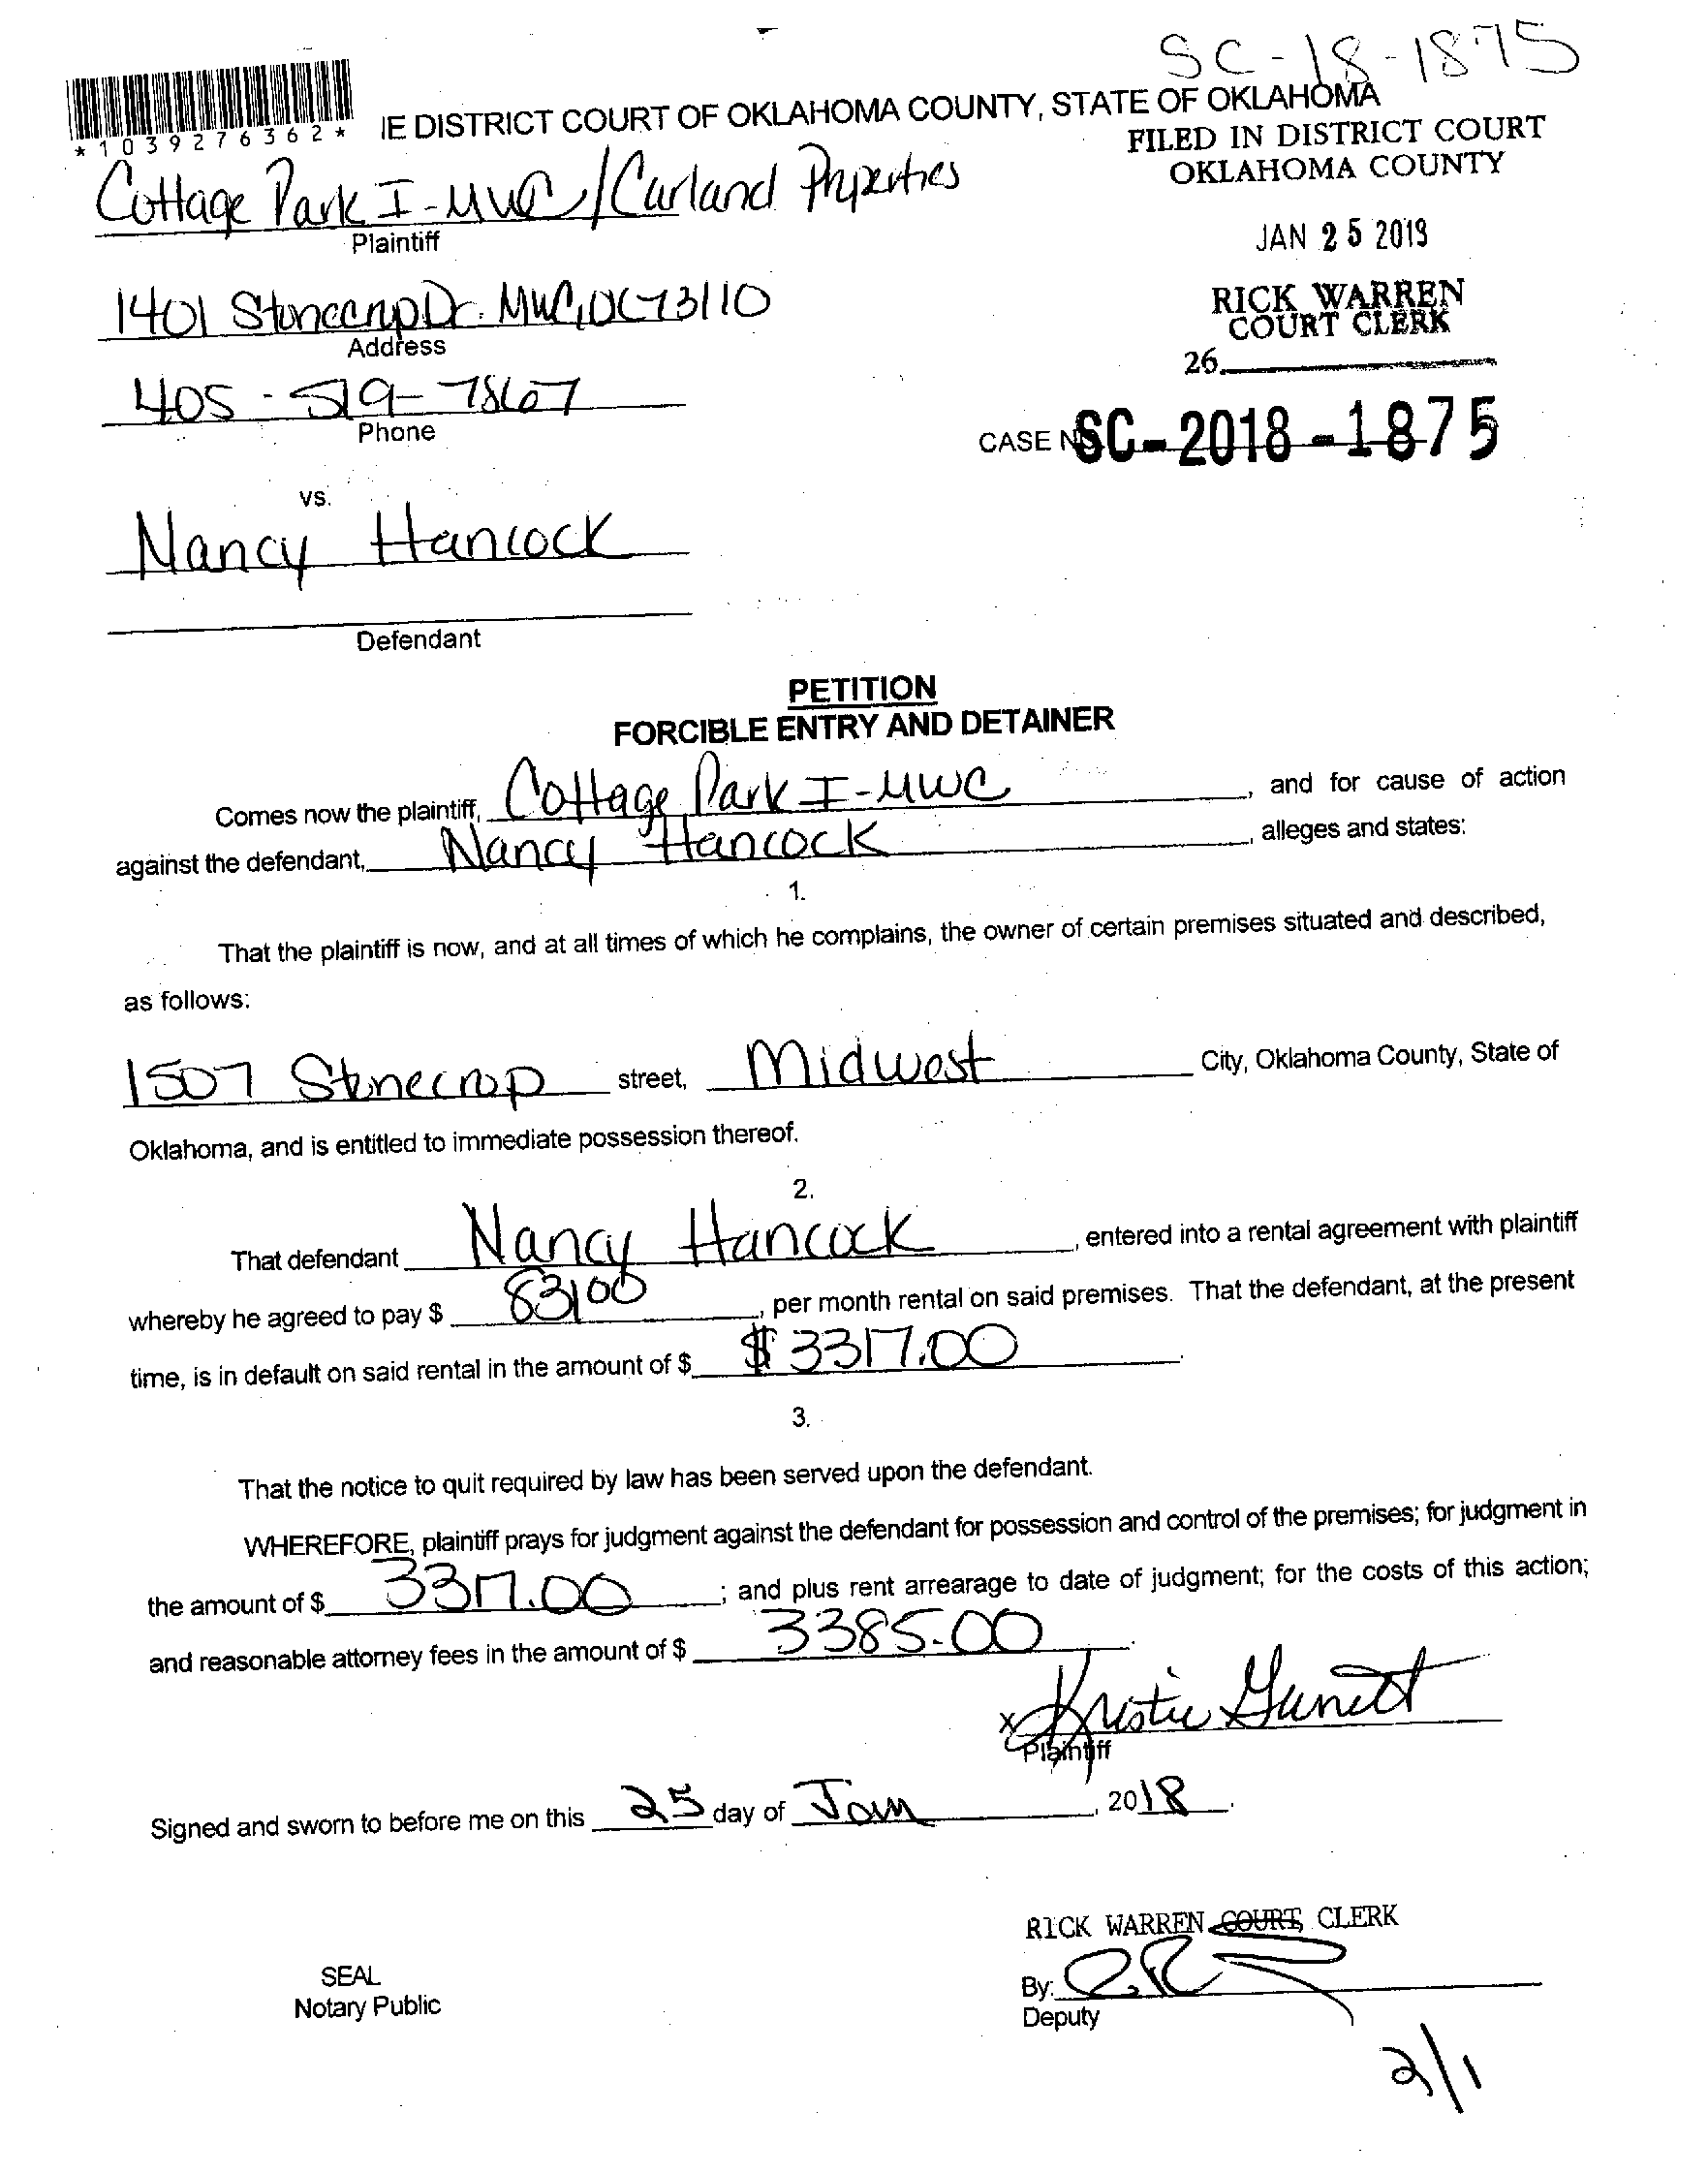 SC-18-1875
*1039276362*
IE DISTRICT COURT OF OKLAHOMA COUNTY, STATE OF OKLAHOMA
FILED IN DISTRICT COURT
OKLAHOMA COUNTY
Cottage Park I-MWC/Carland Properties
Plaintiff
JAN 25 2019
1401 Stonecrop Dr. MWC, OK 73110
Address
RICK WARREN
COURT CLERK
26
405-519-7867
Phone
CASE NO SC-2018-1875
vs.
Nancy Hancock
Defendant
PETITION
FORCIBLE ENTRY AND DETAINER
Comes now the plaintiff, Cottage Park I-MWC, and for cause of action
against the defendant, Nancy Hancock, alleges and states:
1.
That the plaintiff is now, and at all times of which he complains, the owner of certain premises situated and described,
as follows:
1507 Stonecrop street, Midwest City, Oklahoma County, State of
Oklahoma, and is entitled to immediate possession thereof.
2.
That defendant Nancy Hancock, entered into a rental agreement with plaintiff
whereby he agreed to pay $ 83100, per month rental on said premises. That the defendant, at the present
time, is in default on said rental in the amount of $ $3317.00.
3.
That the notice to quit required by law has been served upon the defendant.
WHEREFORE, plaintiff prays for judgment against the defendant for possession and control of the premises; for judgment in
the amount of $ 3317.00; and plus rent arrearage to date of judgment; for the costs of this action;
and reasonable attorney fees in the amount of $ 3385.00.
x Kristie Garrett
Plaintiff
Signed and sworn to before me on this 25 day of Jan, 2018.
RICK WARREN COURT CLERK
SEAL
Notary Public
By:
Deputy
2/1